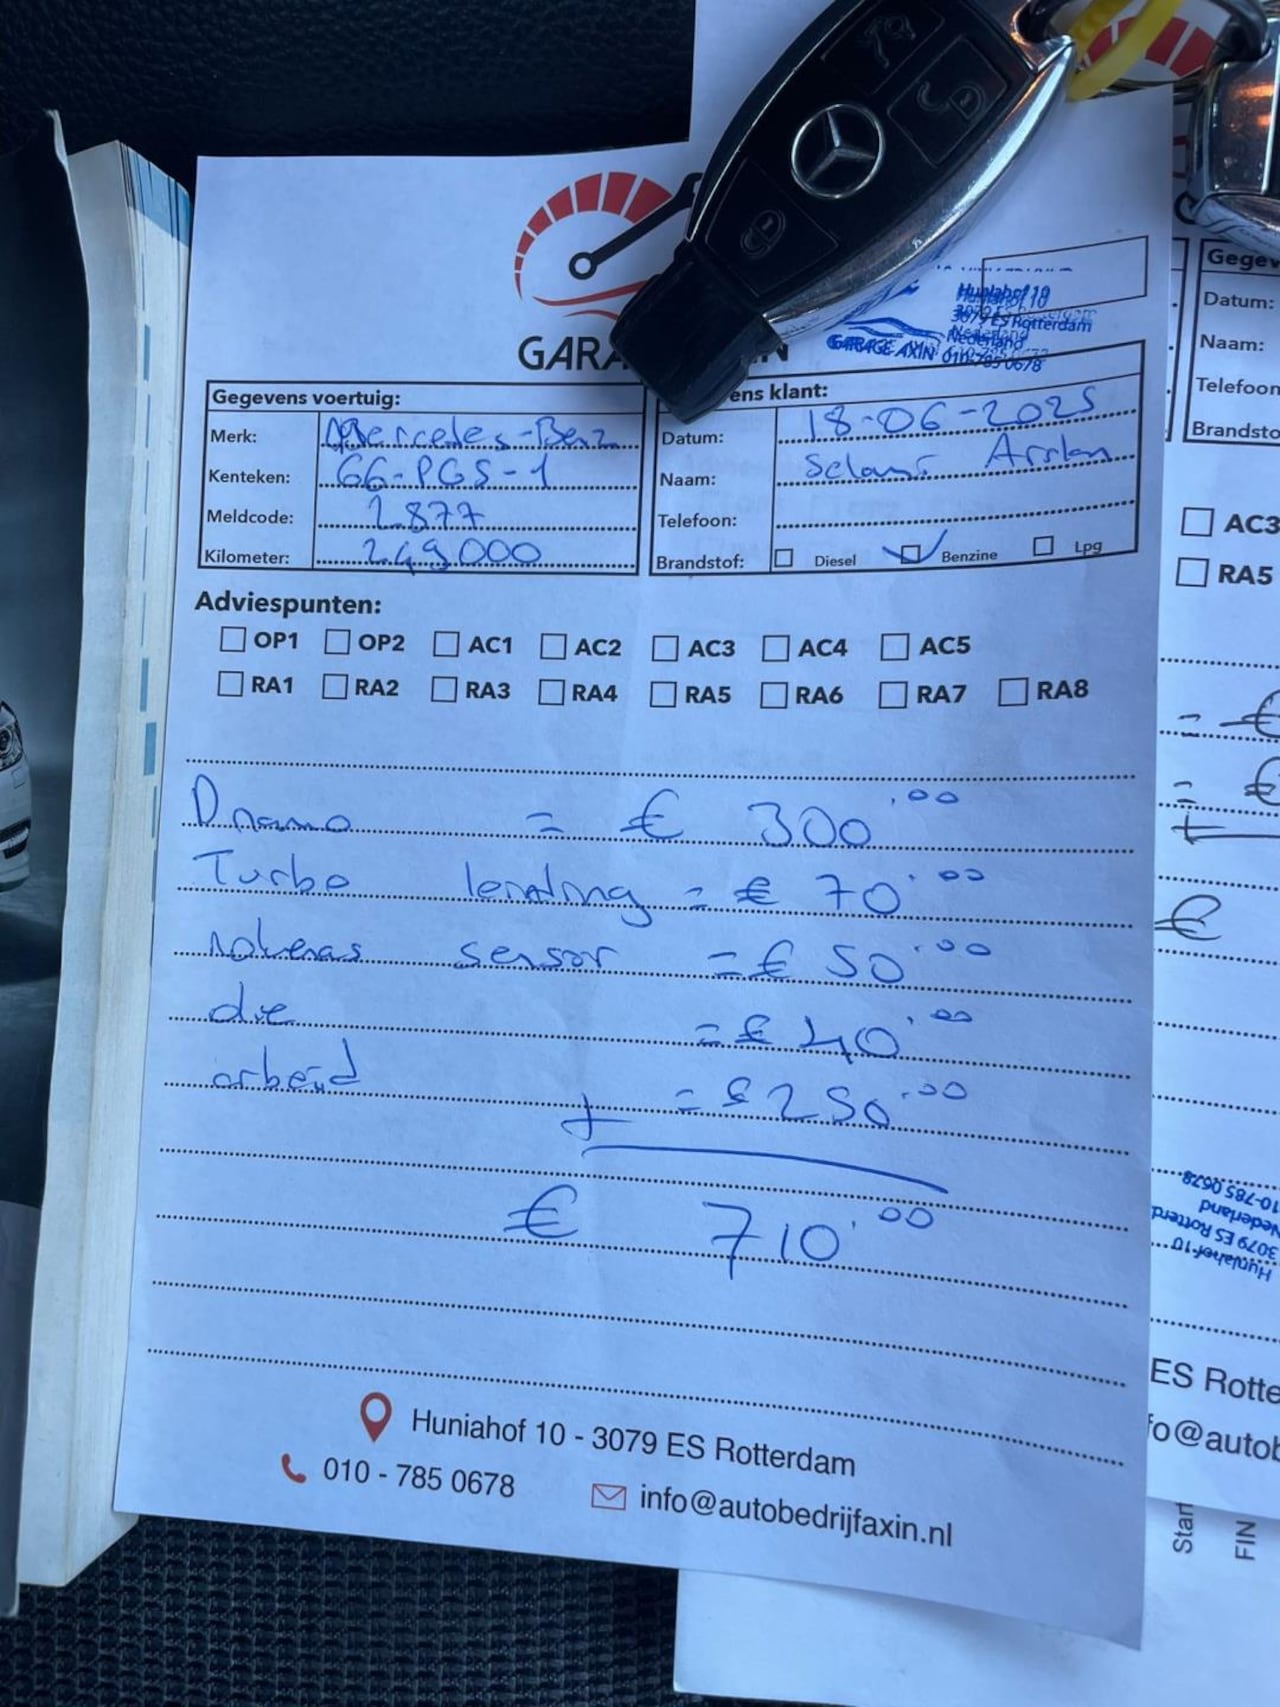 GARA
Huniahof 10
3079 ES Rotterdam
Nederland
GARAGE AXIN 010-785 0678
Gegevens voertuig:
Merk: Mercedes-Benz
Kenteken: GG-PGS-1
Meldcode: 2877
Kilometer: 249000
ens klant:
Datum: 18-06-2025
Naam: Selami Arslan
Telefoon:
Brandstof: Diesel Benzine Lpg
Adviespunten:
OP1 OP2 AC1 AC2 AC3 AC4 AC5
RA1 RA2 RA3 RA4 RA5 RA6 RA7 RA8
Dnamo = € 300.00
Turbo leiding = € 70.00
nokenas sensor = € 50.00
= € 40.00
arbeid = € 250.00
+
€ 710.00
Huniahof 10 - 3079 ES Rotterdam
010 - 785 0678 info@autobedrijfaxin.nl
Gegev
Datum:
Naam:
Telefoon
Brandsto
AC3
RA5
= €
= €
+
€
Huniahof 10
3079 ES Rotterd
Nederland
10-785 0678
ES Rotte
fo@autob
Star
FIN